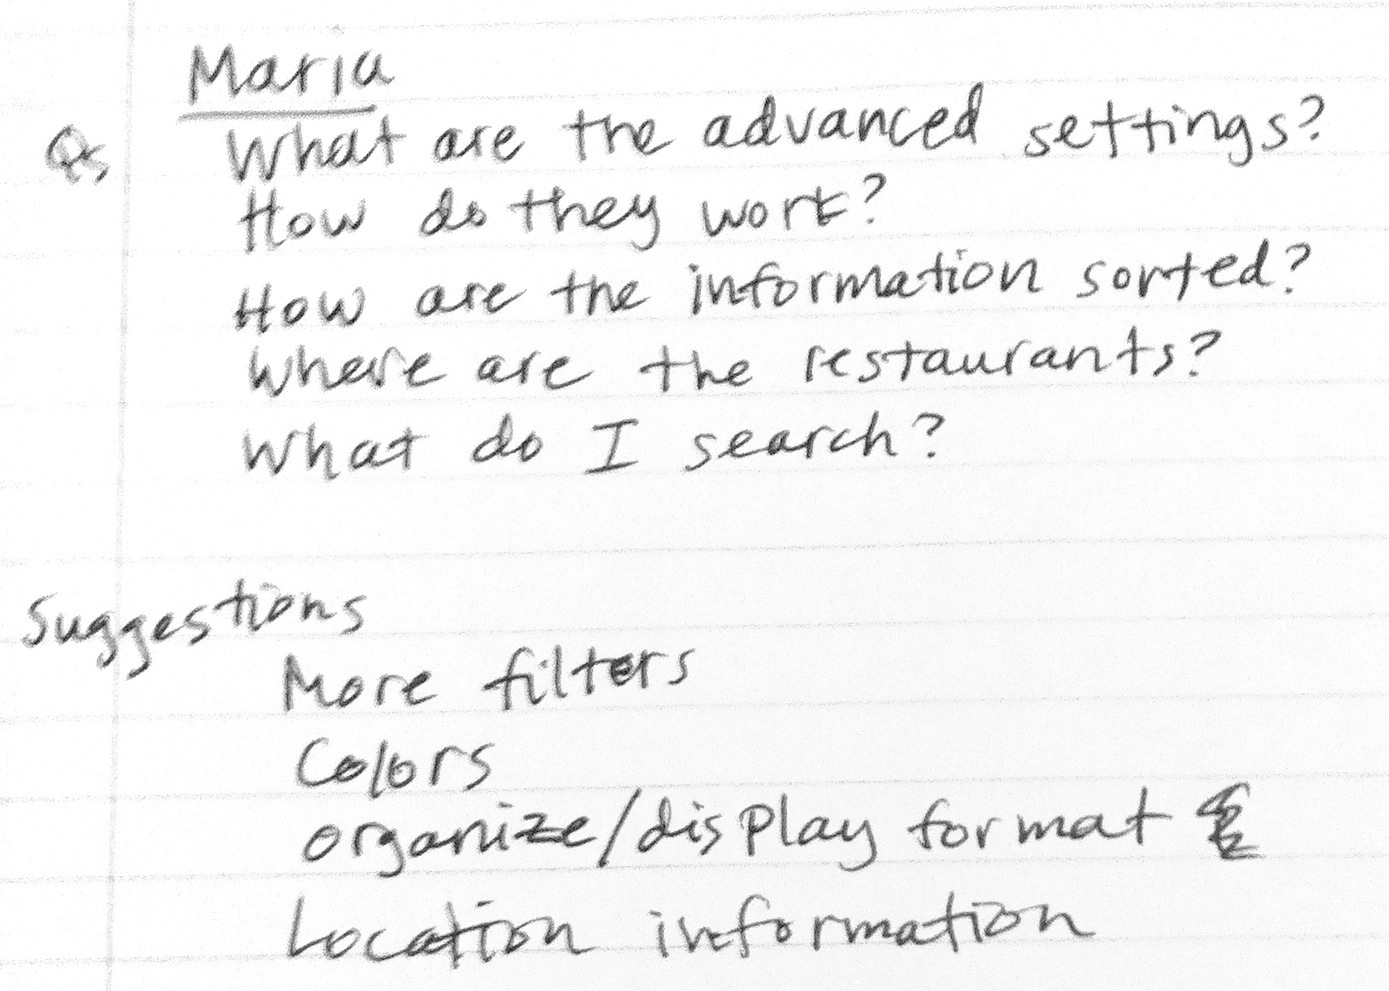 Maria
Qs What are the advanced settings?
How do they work?
How are the information sorted?
Where are the restaurants?
What do I search?
Suggestions
More filters
Colors
organize/display format
Location information